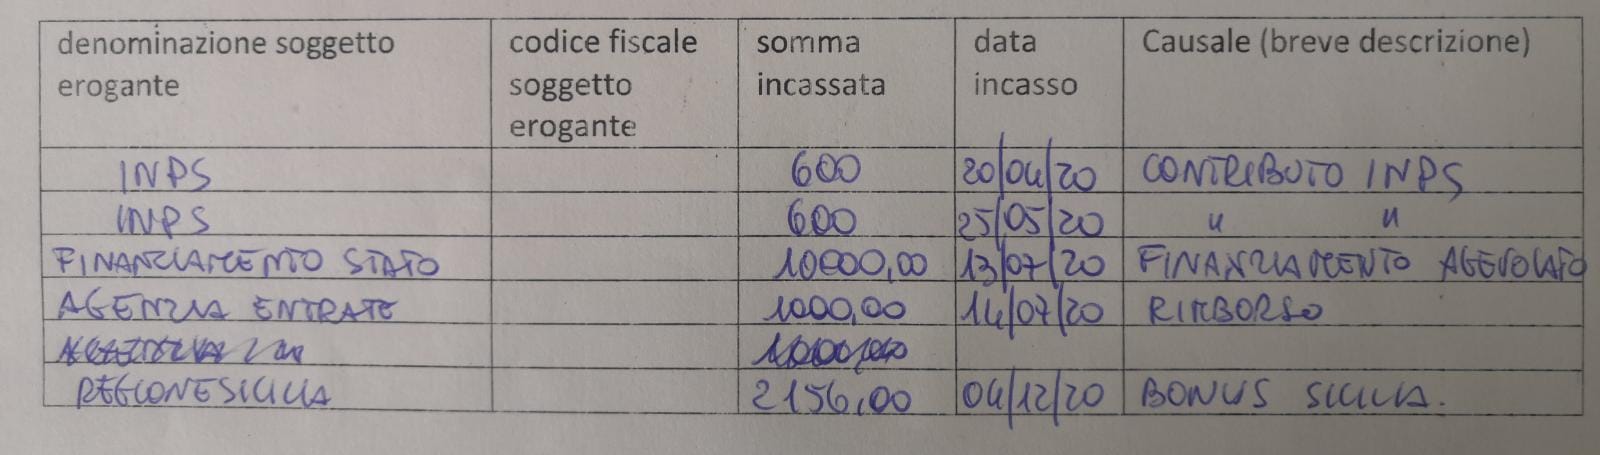 denominazione soggetto erogante codice fiscale soggetto erogante somma incassata data incasso Causale (breve descrizione)
INPS 600 20/04/20 CONTRIBUTO INPS
INPS 600 25/05/20 " "
FINANZIAMENTO STATO 10000,00 13/07/20 FINANZIAMENTO AGEVOLATO
AGENZIA ENTRATE 1000,00 14/07/20 RIMBORSO
REGIONE SICILIA 2156,00 04/12/20 BONUS SICILIA.